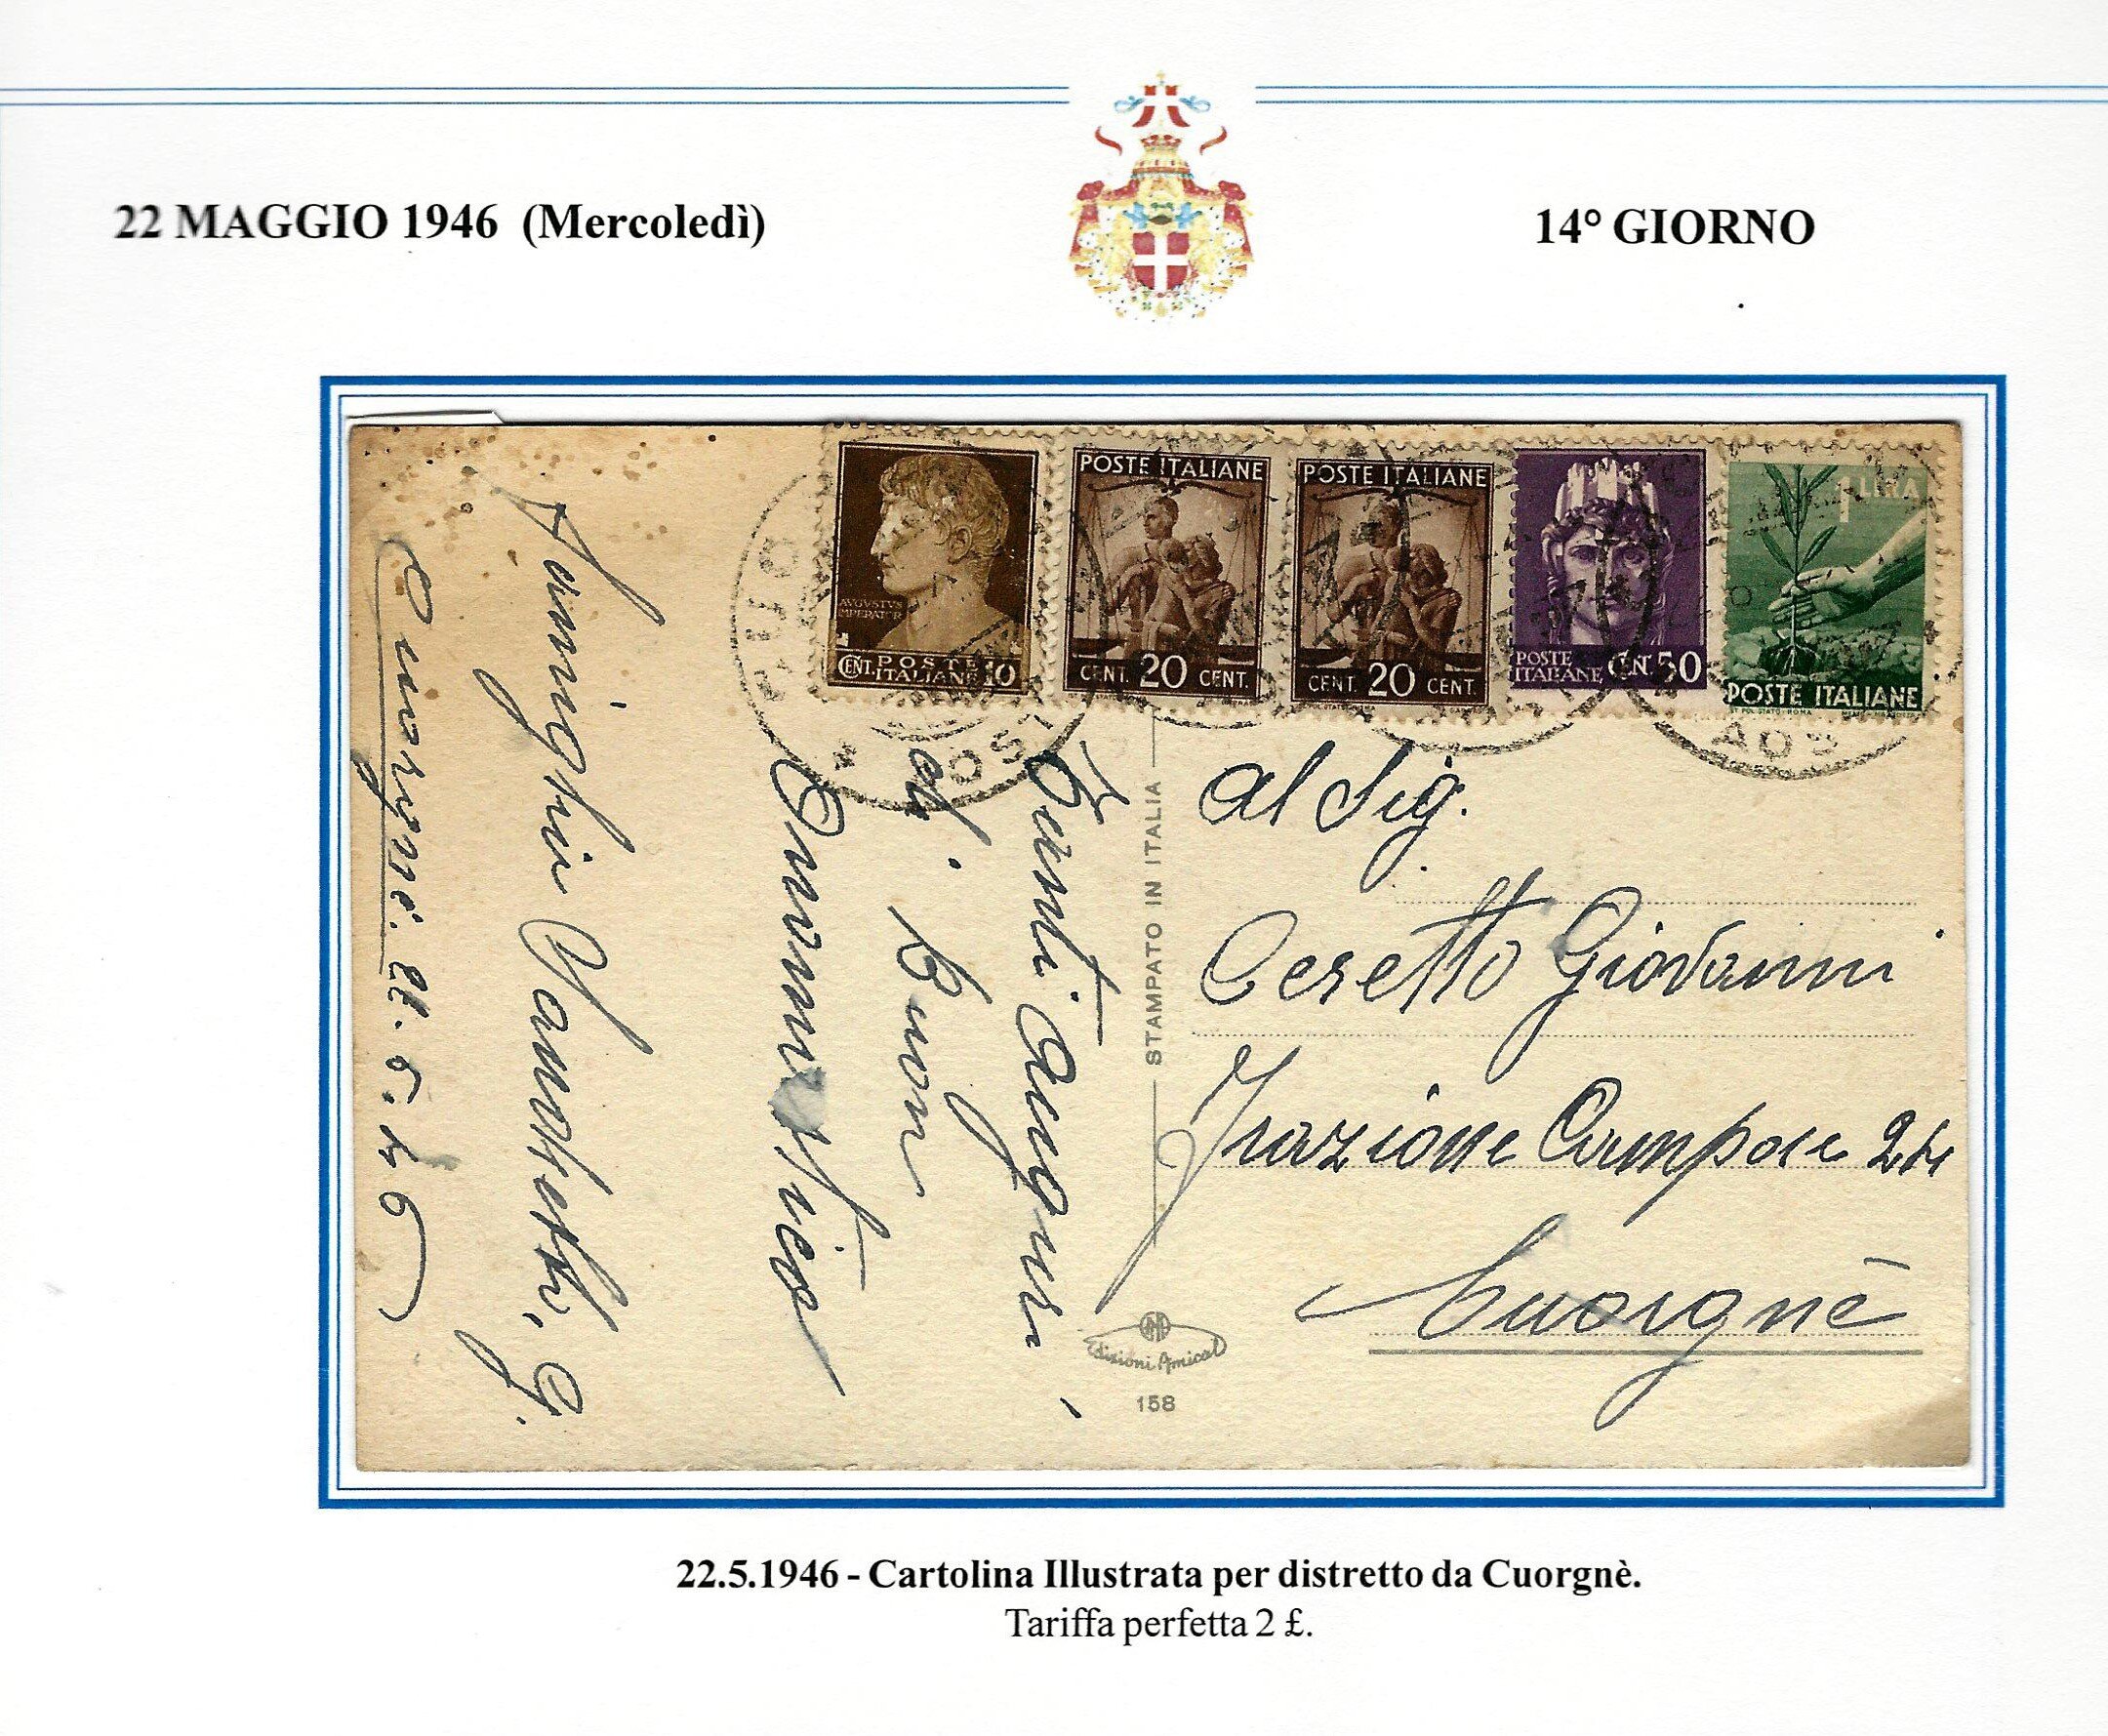 22 MAGGIO 1946 (Mercoledì)
14° GIORNO
AVGVSTVS
IMPERATOR
CENT. POSTE
ITALIANE 10
POSTE ITALIANE
CENT. 20 CENT.
POSTE ITALIANE
CENT. 20 CENT.
POSTE
ITALIANE CENT 50
1 LIRA
POSTE ITALIANE
Al Sig.
Ceretto Giovanni
Frazione Campore 24
Cuorgnè
STAMPATO IN ITALIA
Edizioni Amical
158
Tanti Auguri
di Buon
Onomastico
Famiglia
Cuorgnè. 22. 5. 46
22.5.1946 - Cartolina Illustrata per distretto da Cuorgnè.
Tariffa perfetta 2 £.